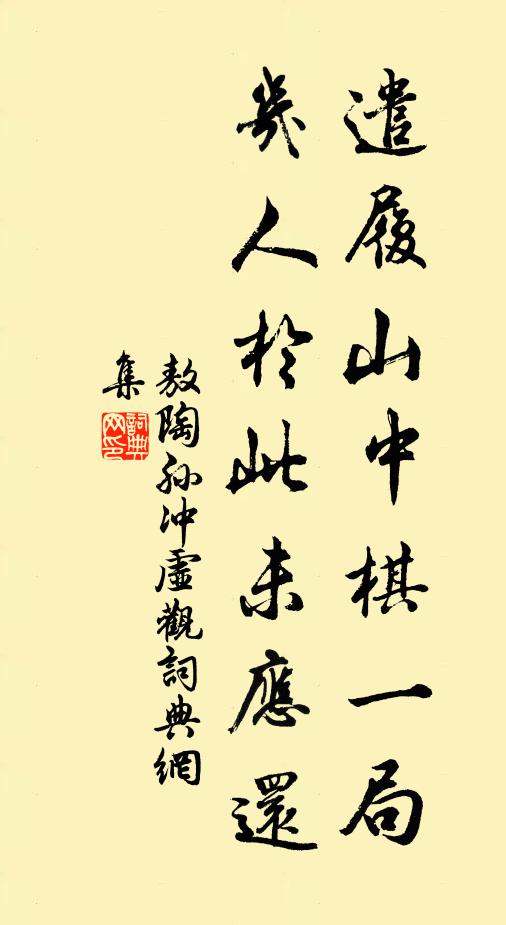 遣履山中棋一局
幾人於此未應還
敖陶孫沖虛觀詞典網
集
詞典網印